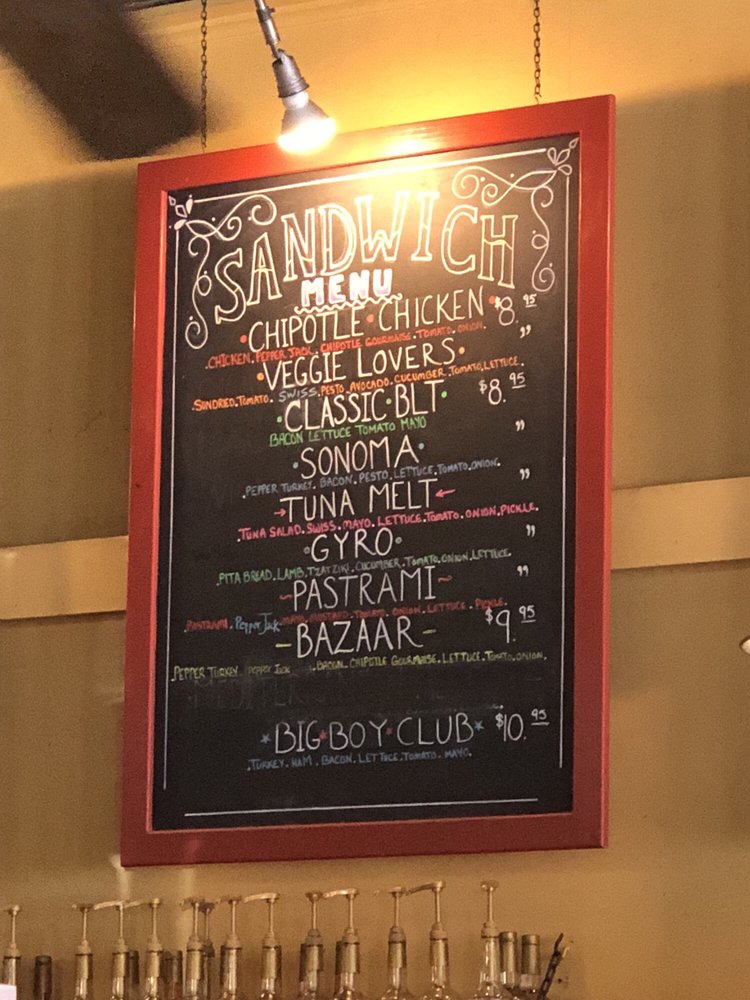 SANDWICH
MENU
CHIPOTLE CHICKEN $8.95
.CHICKEN.PEPPER JACK.CHIPOTLE GOURMAISE.TOMATO.ONION.
VEGGIE LOVERS "
.SUNDRIED.TOMATO.SWISS.PESTO.AVOCADO.CUCUMBER.TOMATO.LETTUCE.
CLASSIC BLT $8.95
BACON LETTUCE TOMATO MAYO
SONOMA "
.PEPPER TURKEY.BACON.PESTO.LETTUCE.TOMATO.ONION.
TUNA MELT "
.TUNA SALAD.SWISS.MAYO.LETTUCE.TOMATO.ONION.PICKLE.
GYRO "
.PITA BREAD.LAMB.TZATZIKI.CUCUMBER.TOMATO.ONION.LETTUCE.
PASTRAMI "
.PASTRAMI.Pepper Jack.MAYO.MUSTARD.TOMATO.ONION.LETTUCE.PICKLE.
BAZAAR $9.95
.PEPPER TURKEY.PEPPER JACK.BACON.CHIPOTLE GOURMAISE.LETTUCE.TOMATO.ONION.
BIG BOY CLUB $10.95
.TURKEY.HAM.BACON.LETTUCE.TOMATO.MAYO.